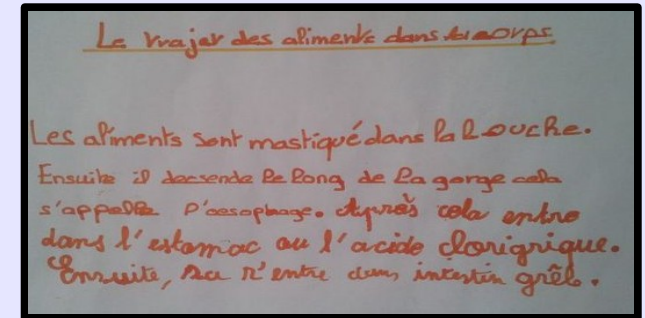 Le trajet des aliments dans le corps.
Les aliments sont mastiqué dans la bouche.
Ensuite il decsende le long de la gorge cela
s'appelle l'oesophage. Après cela entre
dans l'estomac ou l'acide clorigrique.
Ensuite, sa r'entre dans intestin grêle.